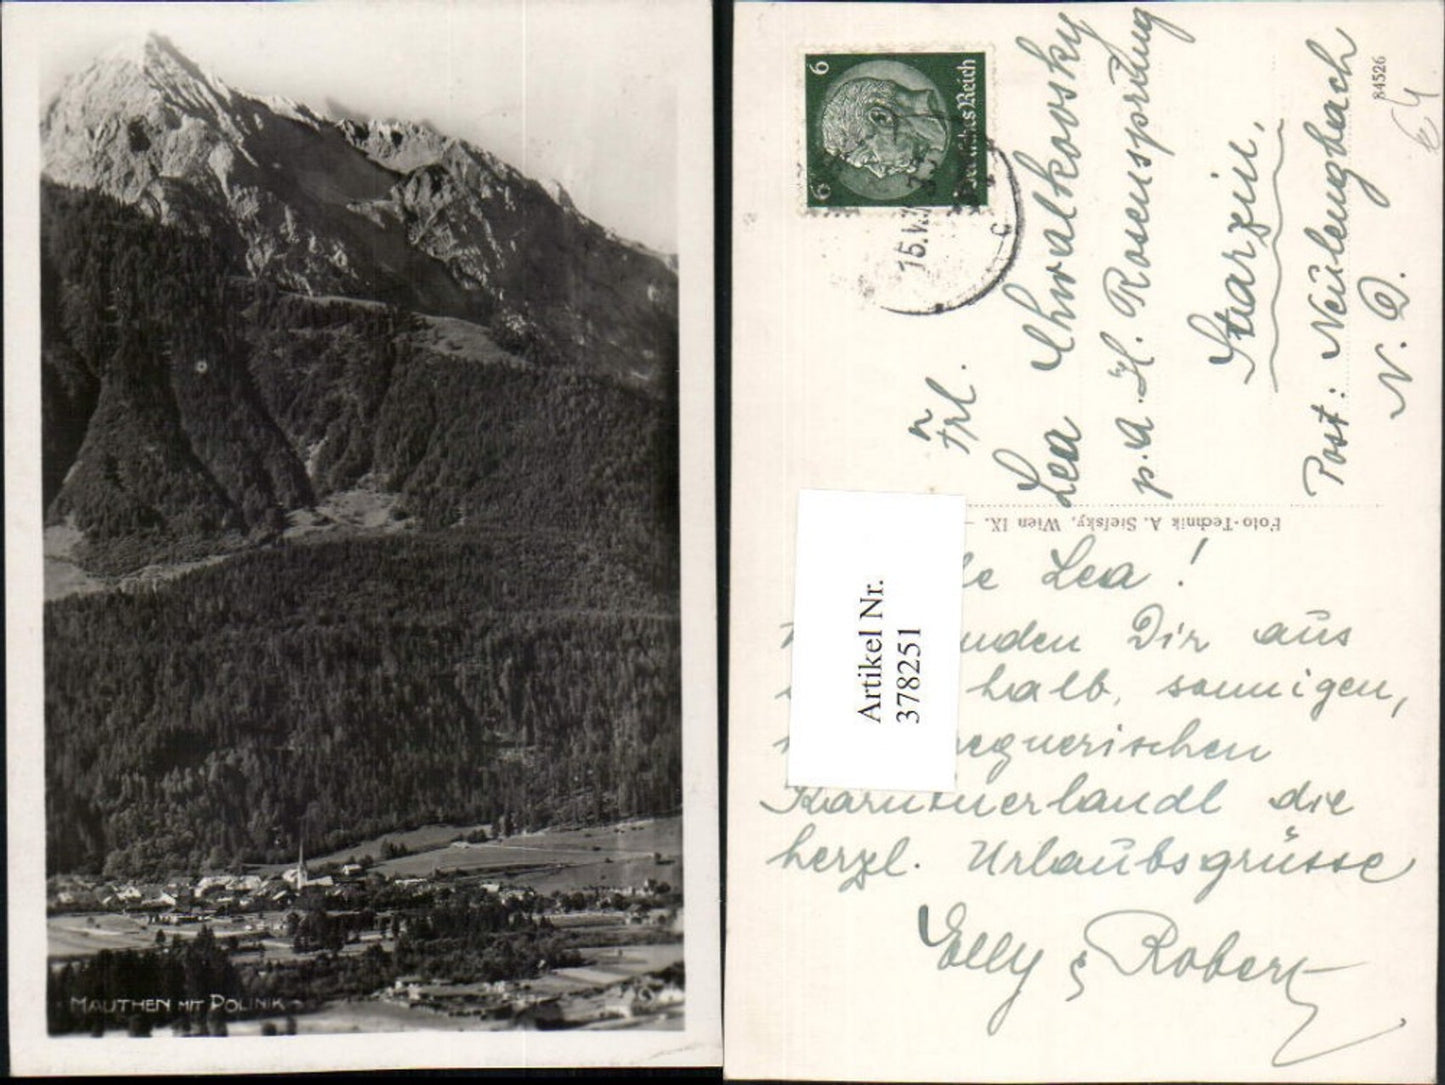 MAUTHEN MIT POLINIK
6
6
Deutsches Reich
15.V.
c
Frl.
Lea Chwalkovsky
p. A. H. Rosensprung
Starzin.
Post: Neulengbach
N. D.
84526
Foto-Technik A. Stefsky, Wien IX.
Artikel Nr.
378251
Lea!
Dir aus
halb, sonnigen,
Kärntnerlandl die
herzl. Urlaubsgrüsse
Elly & Robert